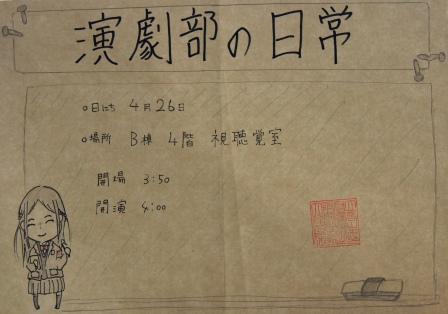 演劇部の日常
○日にち 4月26日
○場所 B棟 4階 視聴覚室
開場 3:50
開演 4:00